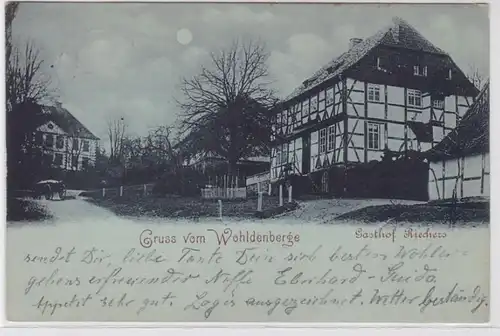 Gruss vom Wohldenberge
Gasthof Riechers
sendet Dir, liebe Tante Dein sich besten Wohler-
gehens erfreuender Neffe Eberhard - Guido.
Appetit sehr gut. Logis ausgezeichnet. Wetter beständig.